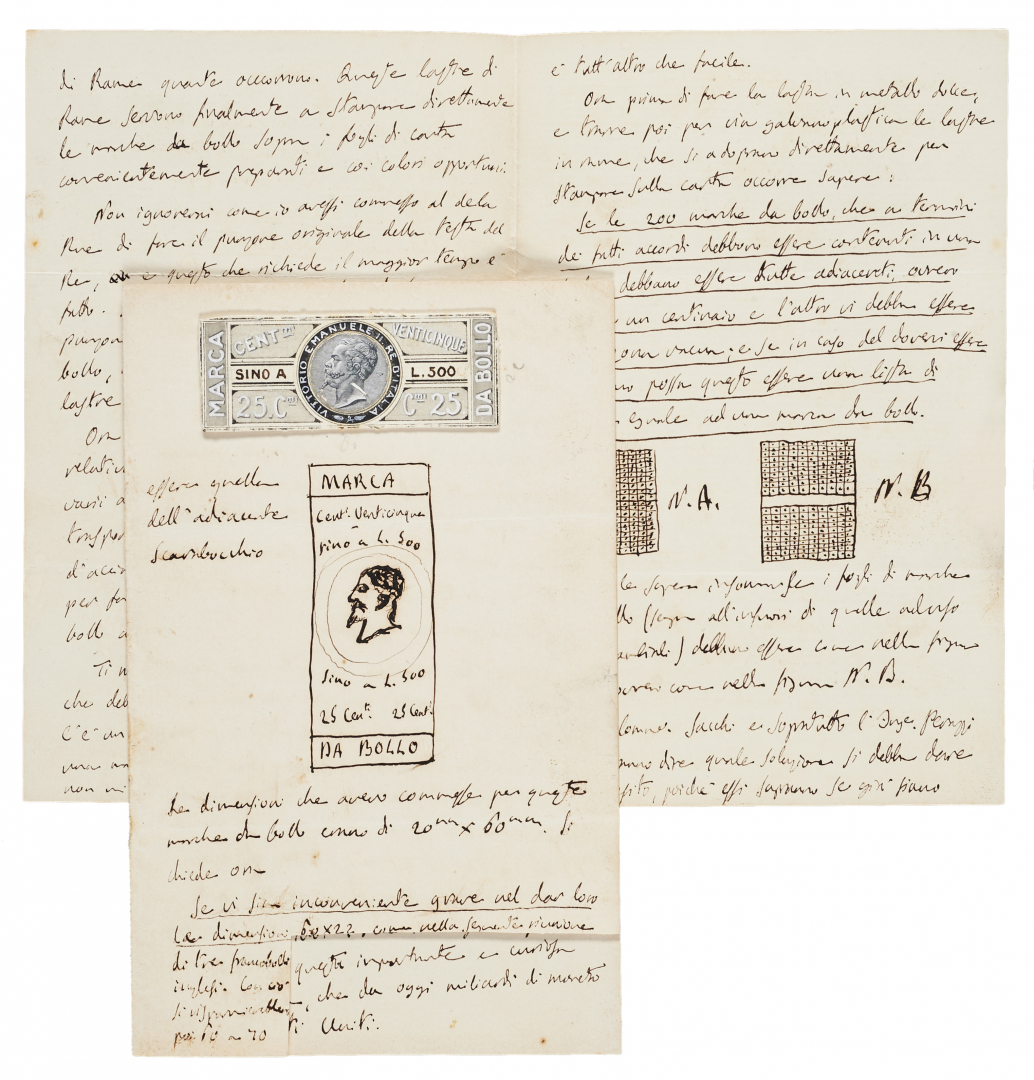 di Rame quante occorrono. Queste lastre di
Rame servono finalmente a stampare direttamente
le marche da bollo sopra i fogli di carta
convenientemente preparati e coi colori opportuni.
Non ignoravi come io avessi commesso al de la
Rue di fare il punzone originale della testa del
Re, e questo che richiede il maggior tempo è
fatto.
punzon
bollo,
lastre
Ora
relativ
varii a
traspor
d'acci
per fa
bollo a
Ti
che deb
C'è un
una
non mi
è tutt'altro che facile.
Ora prima di fare la lastra in metallo dolce,
e trarne poi per via galvanoplastica le lastre
in rame, che si adoprano direttamente per
stampare sulla carta occorre sapere:
Se le 200 marche da bollo, che a termini
dei fatti accordi debbono essere contenuti in una
debbano essere tutte adiacenti, ovvero
un centinaio e l'altro vi debba essere
zona vacua; e se in caso del doversi essere
possa questo essere una lista di
eguale ad una marca da bollo.
N. A.
N. B
le sapere insomma se i fogli di marche
llo (segna all'infuori di quelle ad uso
) debbano essere come nella figura
ovvero come nella figura N. B.
Comm. Sacchi e soprattutto l'Inge. Perazzi
anno dire quale soluzione si debba dare
esito, poichè essi sapranno se già siano
MARCA
CENTmi VENTICINQUE
VITTORIO EMANUELE II. RE D'ITALIA
SINO A L. 500
25. Cmi Cmi 25
DA BOLLO
essere quella
dell'adiacente
Scarabocchio
MARCA
Cent. Venticinque
sino a L. 500
sino a L. 500
25 Cent. 25 Cent.
DA BOLLO
Le dimensioni che avevo commesse per queste
marche da bollo erano di 20mm x 60mm. Si
chiede ora
Se vi sia inconveniente grave nel dar loro
le dimensioni 60x22, come nella seguente riunione
di tre francobolli
inglesi. Con ciò
si risparmierebbero
poi 60 a 70
questa importante e curiosa
, che da oggi miliardi di moneta
ti Uniti.